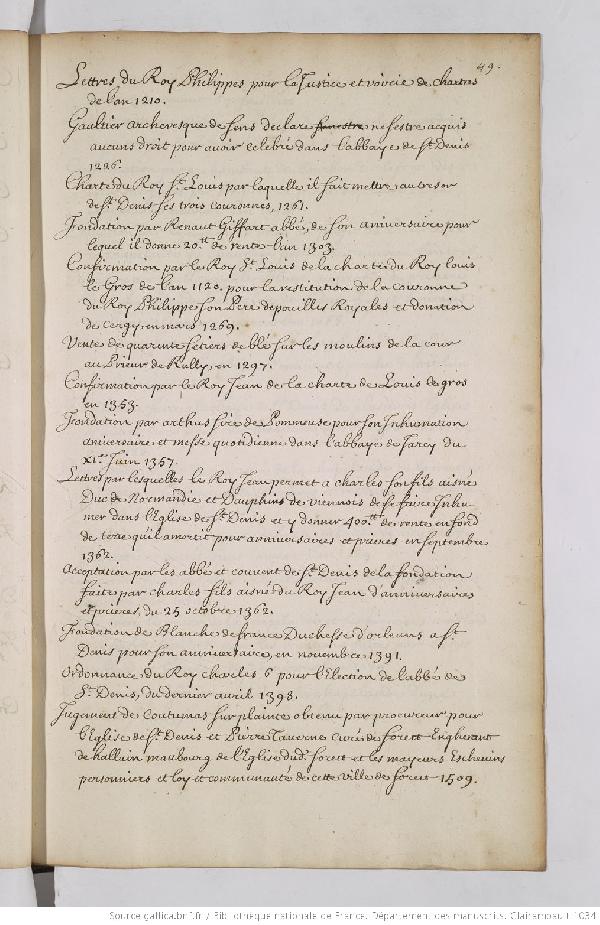 49.
Lettres du Roy Philippes pour la Justice et voirie de chartres
de l'an 1210.
Gaultier archevesque de sens declare ne s'estre acquis
aucuns droit pour avoir celebré dans l'abbaye de St. Denis
1226.
Charte du Roy St. Louis par laquelle il fait mettre au tresor
de St. Denis ses trois couronnes, 1261.
Fondation par Renaut Giffart abbé, de son aniversaire pour
lequel il donne 20.tt de rente l'an 1303.
Confirmation par le Roy St. Louis de la charte du Roy louis
le Gros de l'an 1120. pour la restitution de la couronne
du Roy Philippe son Pere depouilles Royales et donation
de Cergy, en mars 1269.
Vente de quarente setiers de blé sur les moulins de la cour
au Prieur de Rully, en 1297.
Confirmation par le Roy Jean de la charte de Louis le gros
en 1353.
Fondation par arthus sire de Pommeuse pour son Inhumation
aniversaire et messe quotidienne dans l'abbaye de Jarcy du
Juin 1357.
Lettres par lesquelles le Roy Jean permet a charles son fils aisné
Duc de Normandie et Dauphin de viennois de se faire Inhu-
mer dans l'Eglise de St. Denis et y donner 400.tt de rente en fond
de terre qu'il amortit pour anniversaires et prieres en septembre
1362.
Acceptation par les abbé et couvent de St. Denis de la fondation
faite par charles fils aisné du Roy Jean d'anniversaires
et prieres, du 25 octobre 1362.
Fondation de Blanche de france Duchesse d'orleans a St.
Denis pour son anniversaire, en novembre 1391.
Ordonnance du Roy charles 6 pour l'Election de l'abbé de
St. Denis, du dernier avril 1398.
Jugement de Coutumas sur plainte obtenu par procureur pour
l'Eglise de St. Denis et Pierre Taverne curé de forest
de hallain maubourg de l'Eglise dud. forest et les mayeurs Eschevins
personniers et loy et communauté de cette ville de forest 1509.
Source gallica.bnf.fr / Bibliothèque nationale de France. Département des manuscrits. Clairambault 1034